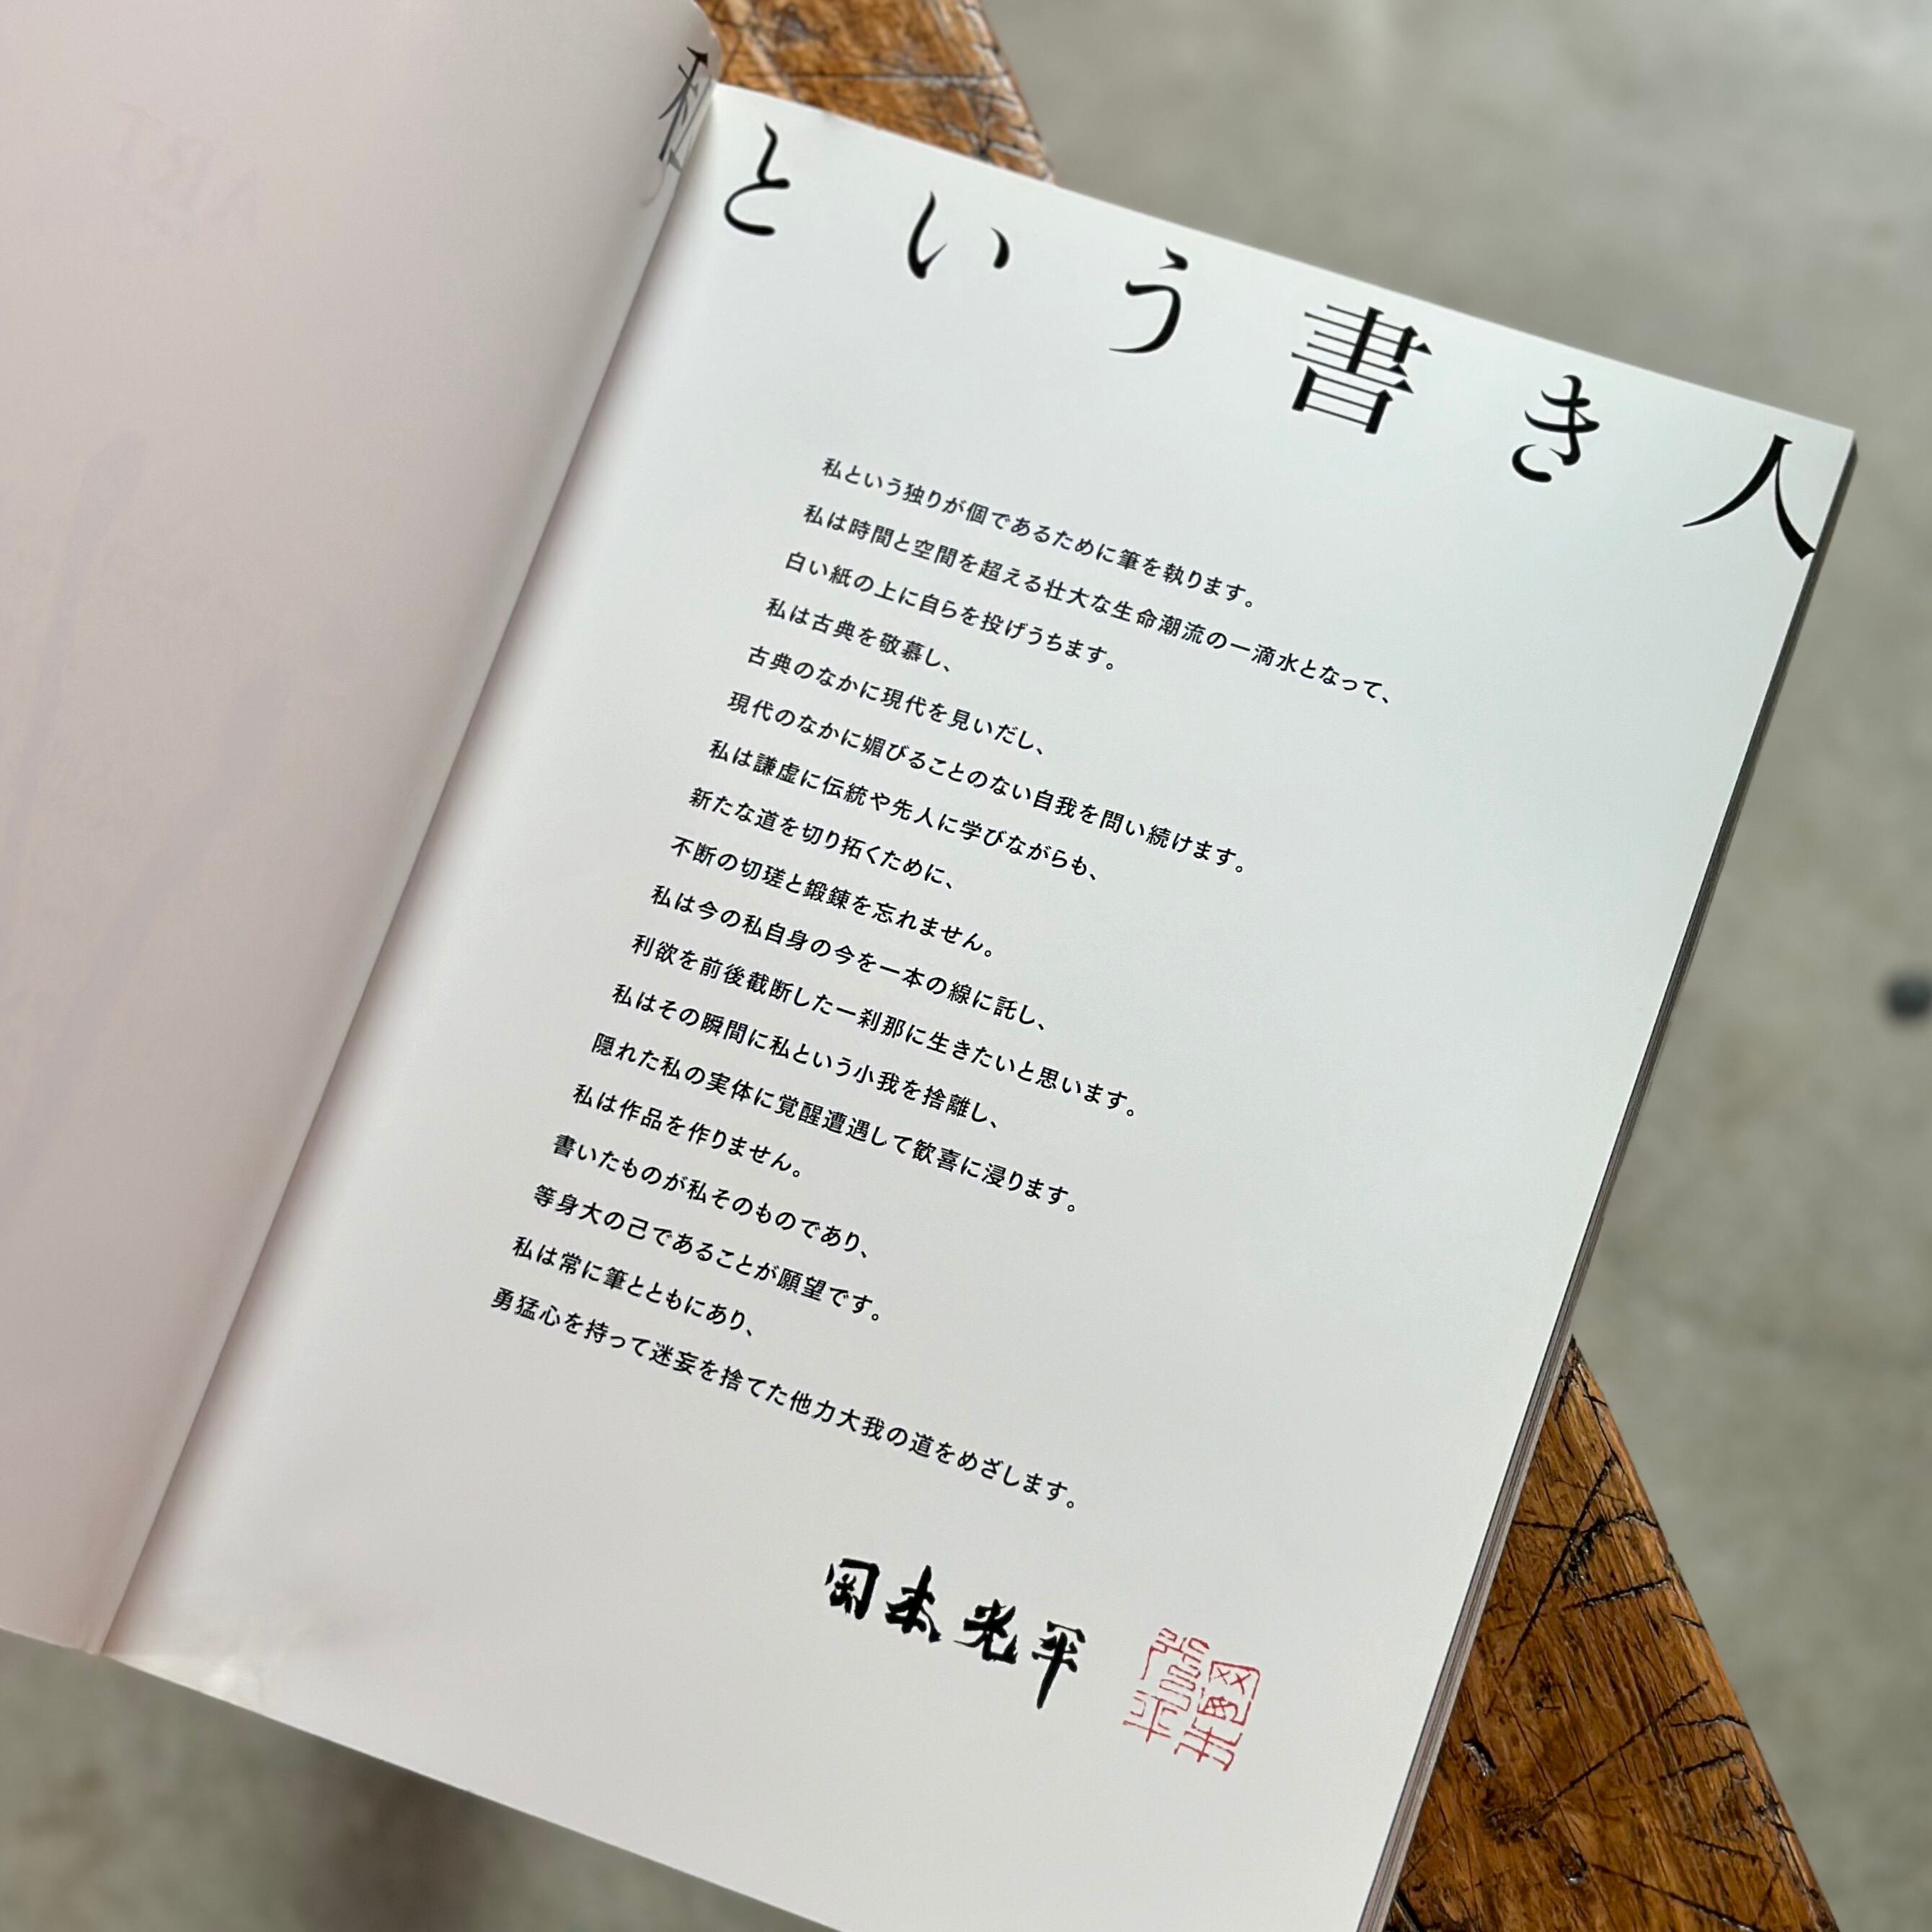 私という書き人
私という独りが個であるために筆を執ります。
私は時間と空間を超える壮大な生命潮流の一滴水となって、
白い紙の上に自らを投げうちます。
私は古典を敬慕し、
古典のなかに現代を見いだし、
現代のなかに媚びることのない自我を問い続けます。
私は謙虚に伝統や先人に学びながらも、
新たな道を切り拓くために、
不断の切瑳と鍛錬を忘れません。
私は今の私自身の今を一本の線に託し、
利欲を前後截断した一刹那に生きたいと思います。
私はその瞬間に私という小我を捨離し、
隠れた私の実体に覚醒遭遇して歓喜に浸ります。
私は作品を作りません。
書いたものが私そのものであり、
等身大の己であることが願望です。
私は常に筆とともにあり、
勇猛心を持って迷妄を捨てた他力大我の道をめざします。
岡本光平